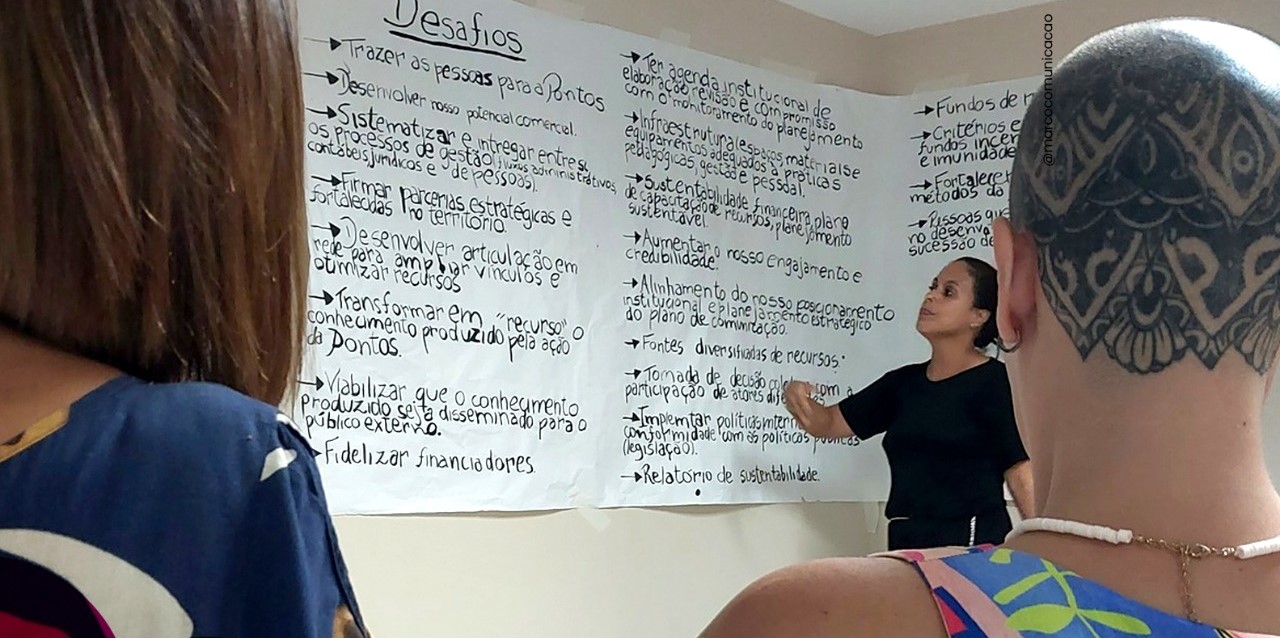 Desafios
→Trazer as pessoas para a Pontos
→Desenvolver nosso potencial comercial.
→Sistematizar e integrar entre si,
os processos de gestão (fluxos administrativos,
contábeis, jurídicos e de pessoas).
→Firmar parcerias estratégicas e
fortalecidas no território.
→Desenvolver articulação em
rede para ampliar vínculos e
otimizar recursos
→Transformar em "recurso" o
conhecimento produzido pela ação
da Pontos.
→Viabilizar que o conhecimento
produzido seja disseminado para o
público externo.
Fidelizar financiadores.
→Ter agenda institucional de
elaboração, revisão e compromisso
com o monitoramento do planejamento
→Infraestrutura (espaços, materiais e
equipamentos adequados à práticas
pedagógicas, gestão e pessoal.
→Sustentabilidade financeira, plano
de captação de recursos, planejamento
sustentável.
→Aumentar o nosso engajamento e
credibilidade.
→Alinhamento do nosso posicionamento
institucional e planejamento estratégico
do plano de comunicação.
→Fontes diversificadas de recursos.
→Tomada de decisão com a
participação de atores
→Implemtar políticas
conformidade com as políticas públicas
(legislação).
→Relatório de sustentabilidade.
→Fundos de
→Critérios e
fundos
e imunidade
→Fortalecer
métodos da
→Pessoas que
no
sucessão de
@marcocomunicacao